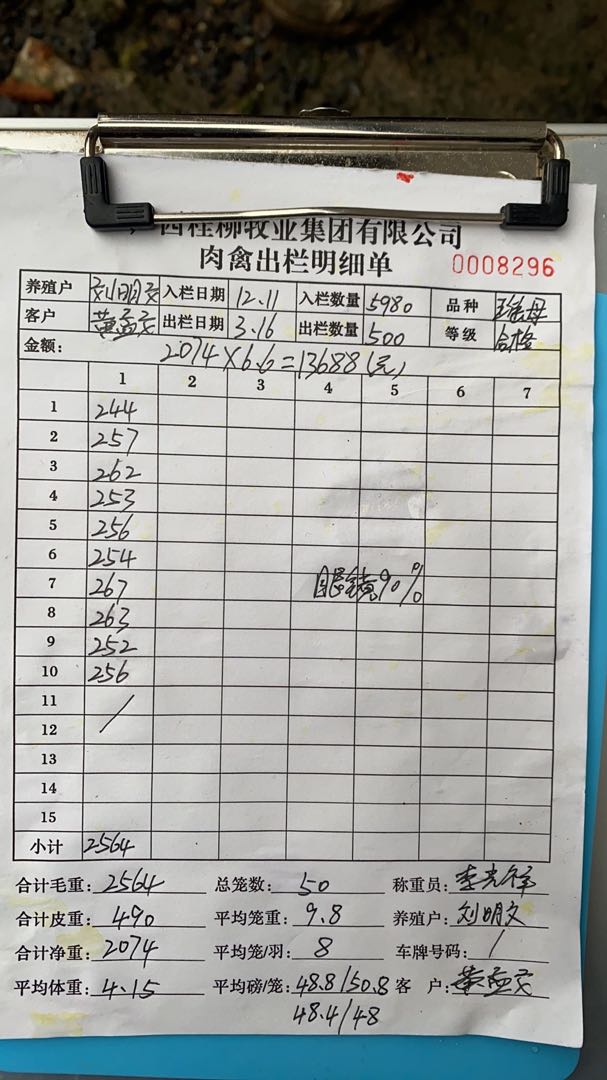 西桂柳牧业集团有限公司
肉禽出栏明细单 0008296
养殖户 刘明文 入栏日期 12.11 入栏数量 5980 品种 瑶母
客户 黄孟文 出栏日期 3.16 出栏数量 500 等级 合格
金额: 2074×6.6=13688(元)
1 2 3 4 5 6 7
1 244
2 257
3 262
4 253
5 256
6 254
7 267 眼镜90%
8 263
9 252
10 256
11 /
12
13
14
15
小计 2564
合计毛重: 2564 总笼数: 50 称重员:
合计皮重: 490 平均笼重: 9.8 养殖户: 刘明文
合计净重: 2074 平均笼/羽: 8 车牌号码: /
平均体重: 4.15 平均磅/笼: 48.8/50.8 客 户: 黄孟文
48.4/48